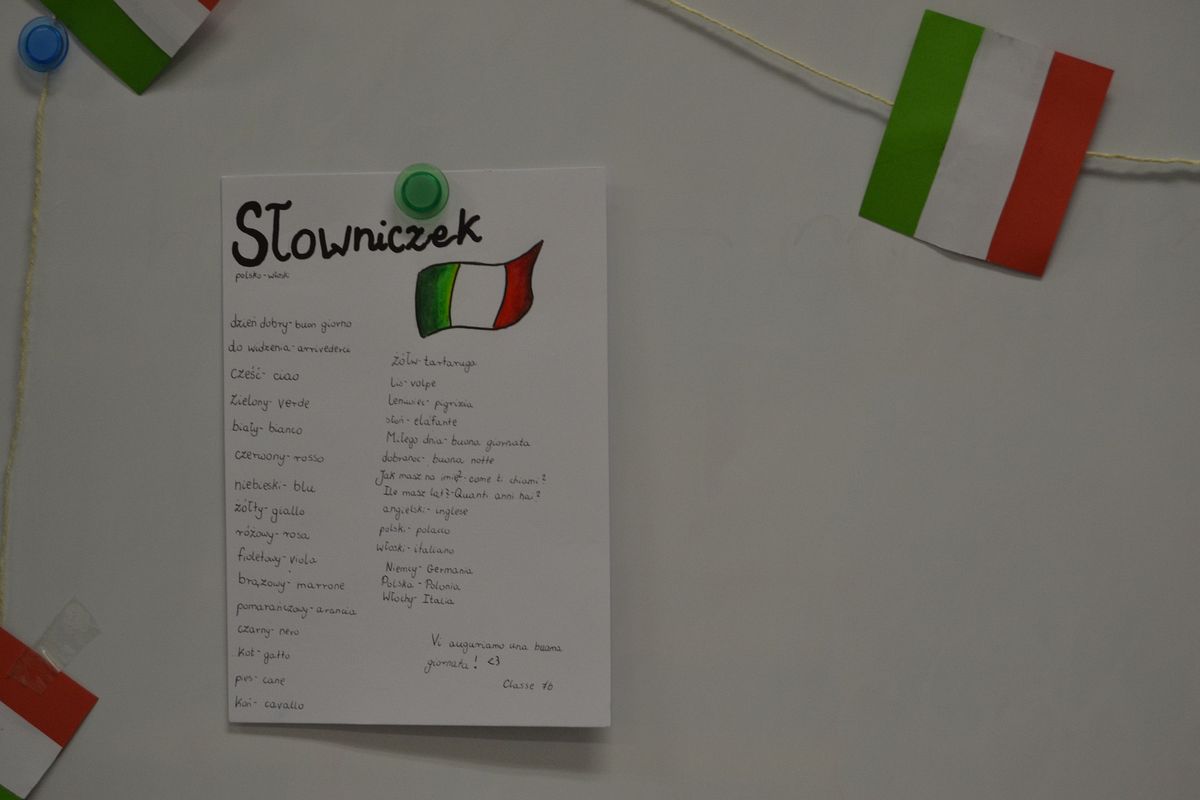 Słowniczek
polsko-włoski
dzień dobry- buon giorno
do widzenia- arrivederci
cześć- ciao
zielony- verde
biały- bianco
czerwony- rosso
niebieski- blu
żółty- giallo
różowy- rosa
fioletowy- viola
brązowy- marrone
pomarańczowy- arancia
czarny- nero
kot- gatto
pies- cane
koń- cavallo
żółw- tartaruga
Lis- volpe
Leniwiec- pigrizia
słoń- elafante
Miłego dnia- buona giornata
dobranoc- buona notte
Jak masz na imię?- come ti chiami?
Ile masz lat?- Quanti anni hai?
angielski- inglese
polski- polacco
włoski- italiano
Niemcy- Germania
Polska- Polonia
Włochy- Italia
Vi auguriamo una buona
giornata! <3
Classe 7b